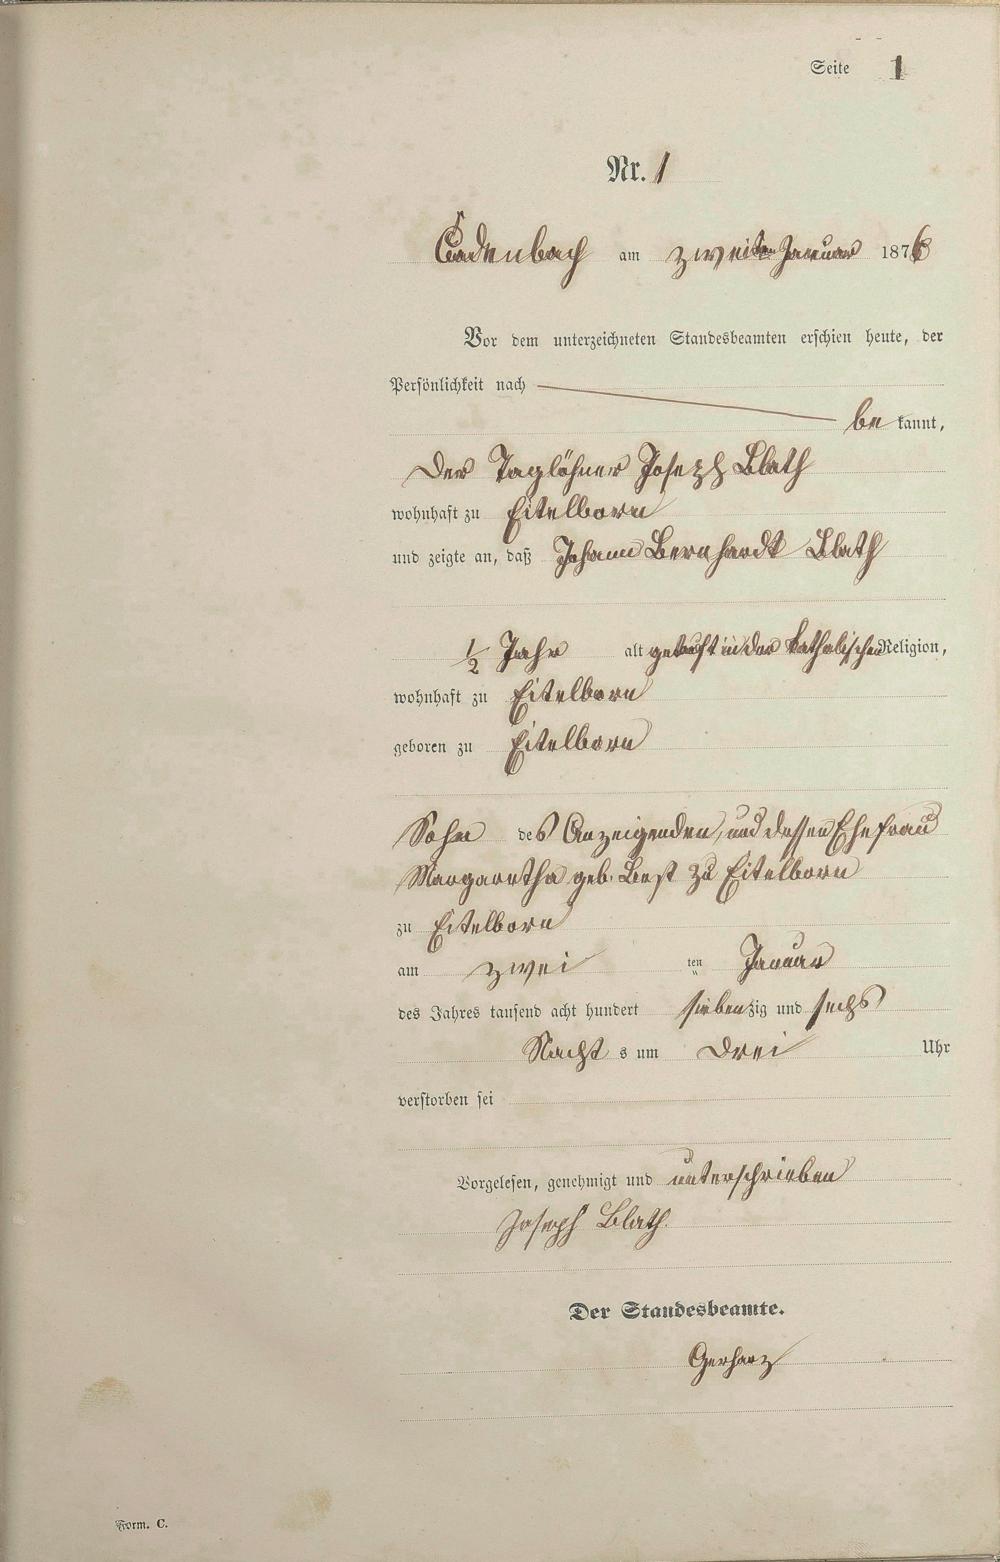 Seite 1
Nr. 1
Cadenbach am zweiten Januar 1876
Vor dem unterzeichneten Standesbeamten erschien heute, der
Persönlichkeit nach
bekannt,
der Taglöhner Joseph Blath
wohnhaft zu Eitelborn
und zeigte an, daß Johann Bernhardt Blath
1/2 Jahr alt getauft in der katholischen Religion,
wohnhaft zu Eitelborn
geboren zu Eitelborn
Sohn des Anzeigenden, und dessen Ehefrau
Margaretha geb. Best zu Eitelborn
zu Eitelborn
am zwei ten Januar
des Jahres tausend acht hundert siebenzig und sechs
Nachts um drei Uhr
verstorben sei
Vorgelesen, genehmigt und unterschrieben
Joseph Blath.
Der Standesbeamte.
Gerharz
Form. C.